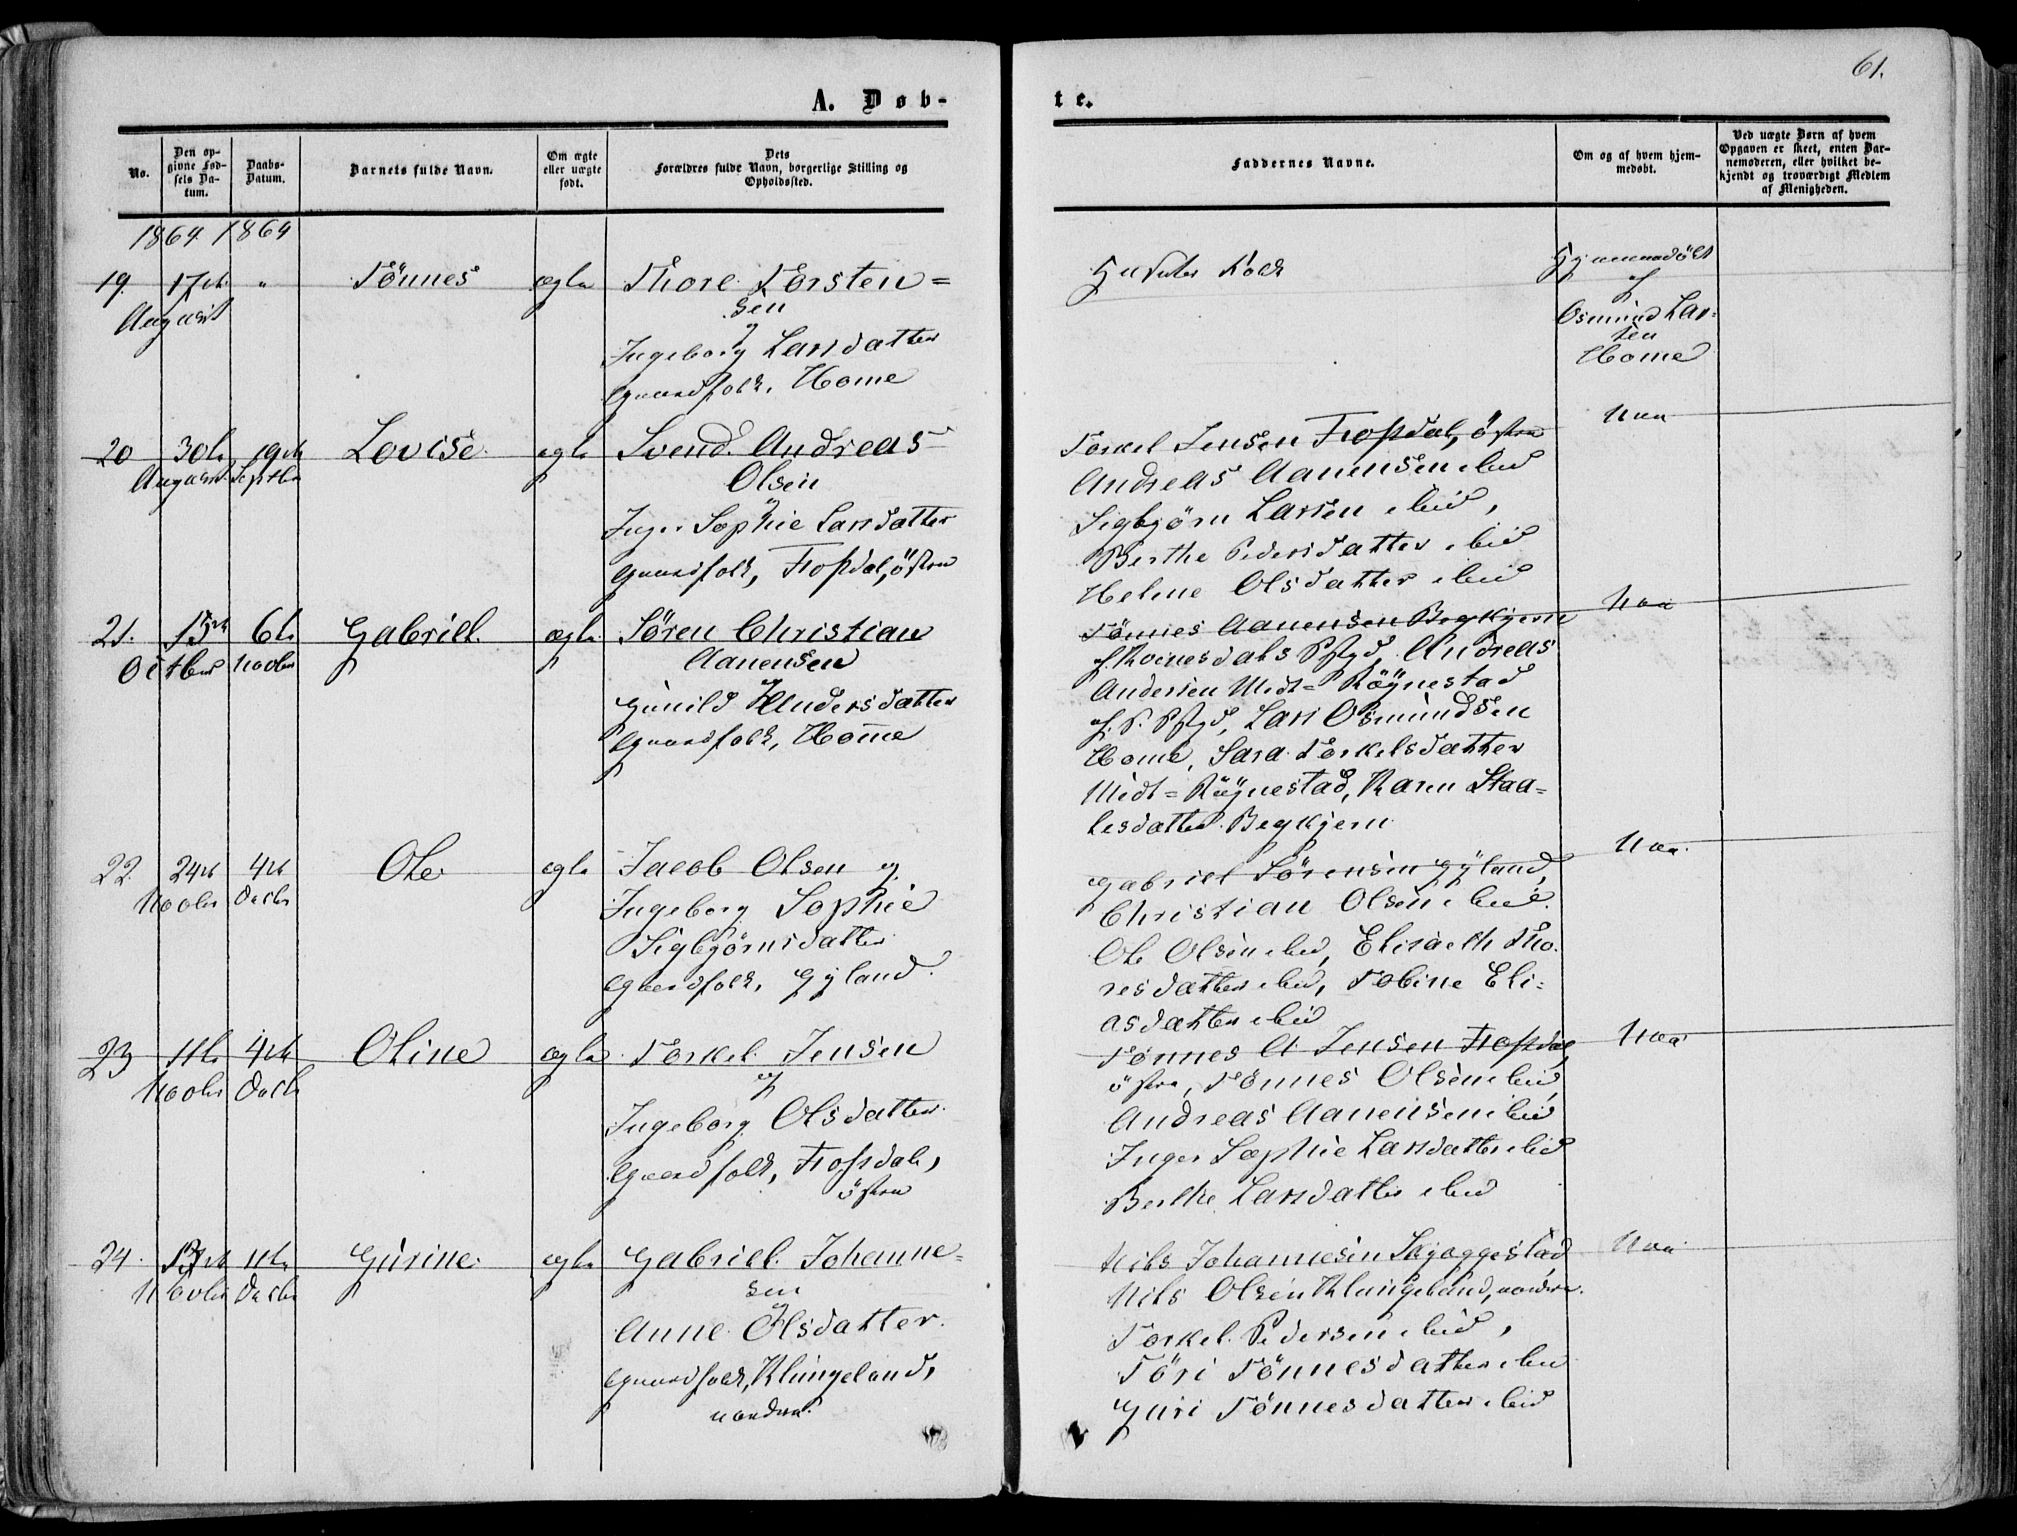 61.
A. Døb-
te.
No.
Den op-
givne Fød-
sels Da-
tum.
Daabs-
Datum.
Barnets fulde Navn.
Om ægte
eller uægte
født.
Dets
Forældres fulde Navn, borgerlige Stilling og
Opholdssted.
Faddernes Navne.
Om og af hvem hjem-
medøbt.
Ved uægte Børn af hvem
Opgaven er skeet, enten Bar-
nemoderen, eller hvilket be-
kjendt og troværdigt Medlem
af Menigheden.
1864 1864
19. 17de " Tönnes ægte Thore Torsten=
August
sen
og
Ingeborg Larsdatter
Gaardfolk, Home
Hjemmedöbt
af
Osmund Lar-
sen
Home
20 30te 19de Lovise ægte Svend Andreas
August Septbr
Olsen
og
Inger Sophie Larsdatter
Gaardfolk, Trofsdal, östre
Torkel Jensen Trofsdal, östre
Andreas Aanensen ibid
Sigbjörn Larsen ibid,
Berthe Pedersdatter ibid
Helene Olsdatter ibid
Naa
21. 15de 6te Gabriel ægte Sören Christian
Octber Novbr
Aanensen
og
Gunild Andersdatter
Gaardfolk, Home
Tönnes Aanensen Begkjern
af Qvinesdals Pgjd, Andreas
Andersen Midt= Röÿnestad
af S. Pgjd, Lars Osmundsen
Home, Sara Torkelsdatter
Midt= Röÿnestad, Karen Staa=
lesdatter Begkjern
Naa
22. 24de 4de Ole ægte Jacob Olsen og
Novbr Decbr
Ingeborg Sophie
Sigbjörnsdatter
Gaardfolk, Gyland.
Gabriel Sörensen Gÿland,
Christian Olsen ibid.
Ole Olsen ibid, Elisaeth Tho-
resdatter ibid, Tobine Eli=
asdatter ibid
Naa.
23 11te 4de Oline ægte Torkel Jensen
Novbr Decbr
og
Ingeborg Olsdatter
Gaardfolk, Trofsdal,
östre
Tönnes A Jensen Trofsdal,
östre, Tönnes Olsen ibid,
Andreas Aanensen ibid
Inger Sophie Larsdatter ibid
Berthe Larsdatter ibid
Naa
24. 13de 11te Gurine ægte Gabriel Johanne-
Novber Decbr
sen
og
Anne Olsdatter.
Gaardfolk, Klungeland,
nordre.
Nils Johannesen Skjeggestad
Nils Olsen Klungeland, nordre.
Torkel Pedersen ibid,
Töri Tönnesdatter ibid
Guri Tönnesdatter ibid
Naa